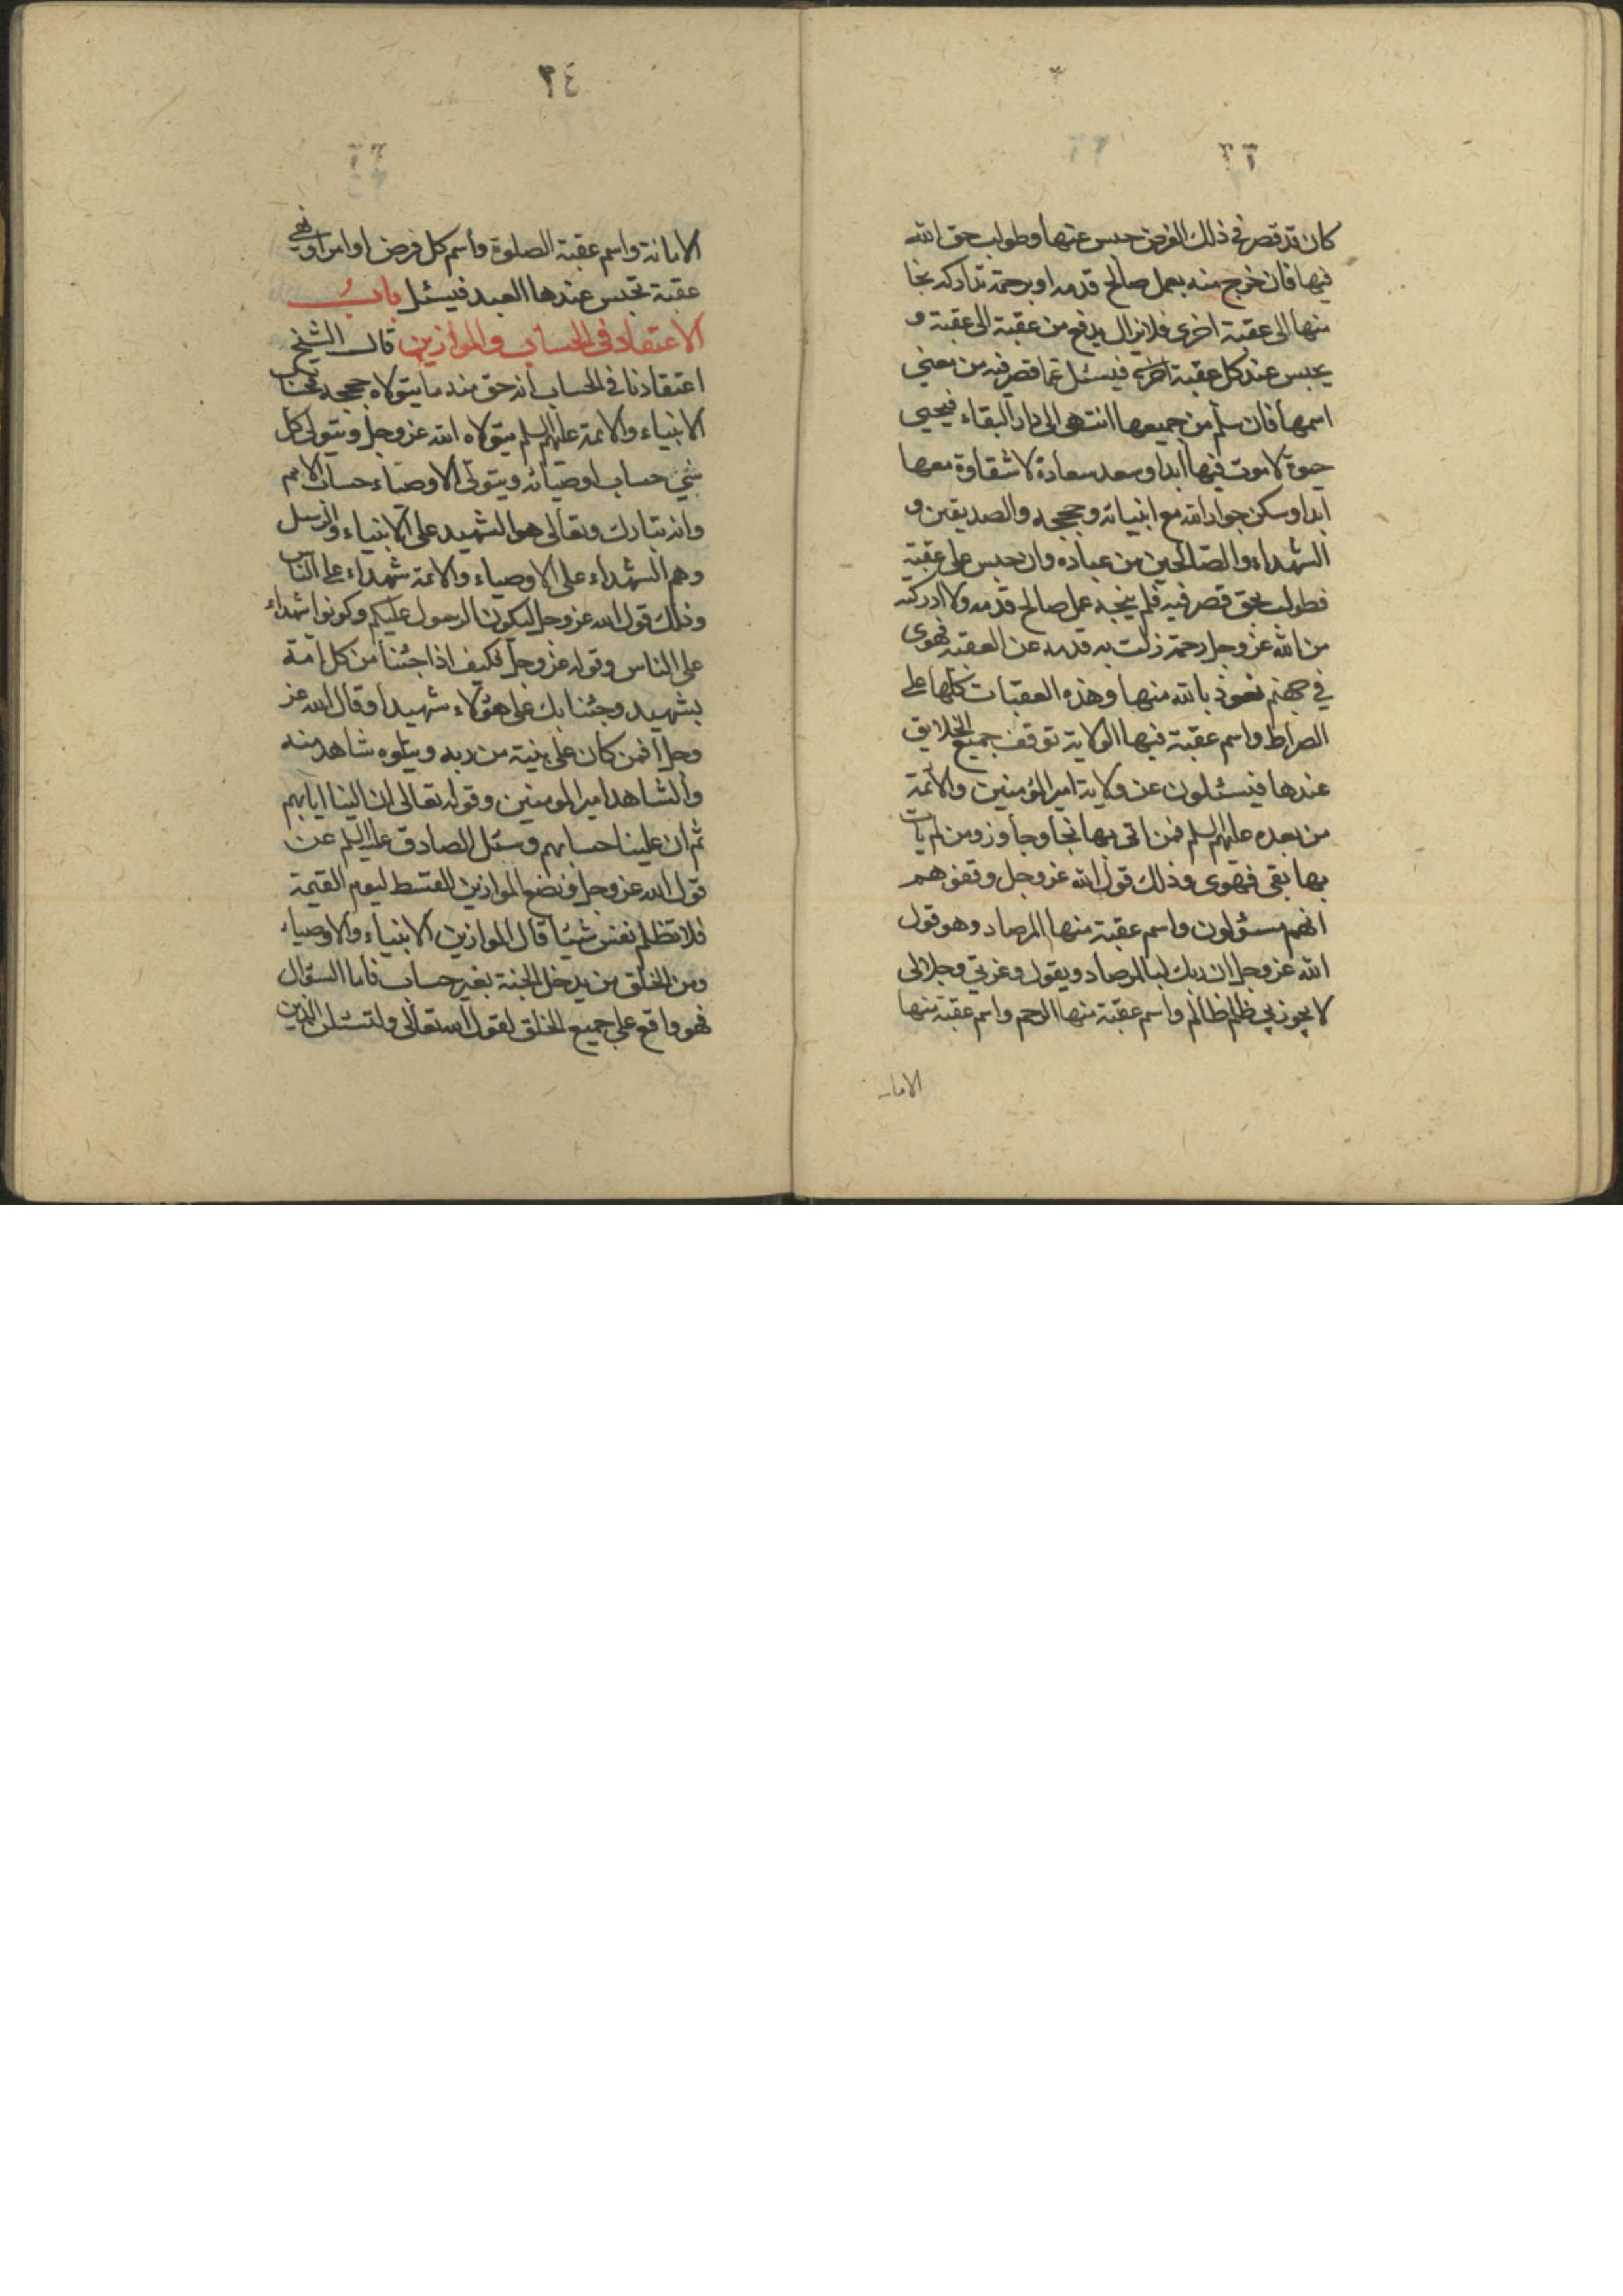 كان قد قصر في ذلك الفرض حبس عنها وطولب بحق الله
فيها فان خرج منه بعمل صالح قدمه او برحمة تداركه نجا
منها الى عقبة اخرى فلا يزال يدفع من عقبة الى عقبة و
يحبس عند كل عقبة فيسئل عما قصر فيه من معنى
اسمها فان سلم من جميعها انتهى الى دار البقاء فيحيى
حيوة لا موت فيها ابدا وسعد سعادة لا شقاوة معها
ابدا وسكن جوار الله مع انبيائه وحججه والصديقين و
الشهداء والصالحين من عباده وان حبس على عقبة
فطولب بحق قصر فيه فلم ينجه عمل صالح قدمه ولا ادركته
من الله عز وجل رحمة زلت به قدمه عن العقبة فهوى
في جهنم نعوذ بالله منها وهذه العقبات كلها على
الصراط واسم عقبة فيها الولاية توقف جميع الخلايق
عندها فيسئلون عن ولاية امير المؤمنين والائمة
من بعده عليهم السلم فمن اتى بها نجا وجاوز ومن لم يات
بها بقى فهوى وذلك قول الله عز وجل وقفوهم
انهم مسئولون واسم عقبة منها المرصاد وهو قول
الله عز وجل ان ربك لبالمرصاد ويقول وعزتي وجلالى
لا يجوز بي ظلم ظالم واسم عقبة منها الرحم واسم عقبة منها
الامانـ
٣٤
الامانة واسم عقبة الصلوة واسم كل فرض او امر او نهي
عقبة تحبس عندها العبد فيسئل باب
الاعتقاد في الحساب والموازين قال الشيخ
اعتقادنا في الحساب انه حق منه ما يتولاه حججه فحساب
الانبياء والائمة عليهم السلم يتولاه الله عز وجل ويتولى كل
نبي حساب اوصيائه ويتولى الاوصياء حساب الامم
وانه تبارك وتعالى هو الشهيد على الانبياء والرسل
وهم الشهداء على الاوصياء والائمة شهداء على الناس
وذلك قول الله عز وجل ليكون الرسول عليكم وكونوا شهداء
على الناس وقوله عز وجل فكيف اذا جئنا من كل امة
بشهيد وجئنا بك على هؤلاء شهيدا وقال الله عز
وجل افمن كان على بينة من ربه ويتلوه شاهد منه
والشاهد امير المومنين وقوله تعالى ان الينا ايابهم
ثم ان علينا حسابهم وسئل الصادق عليه السلم عن
قول الله عز وجل ونضع الموازين القسط ليوم القيمة
فلا تظلم نفس شيئا قال الموازين الانبياء والاوصياء
ومن الخلق من يدخل الجنة بغير حساب فاما السؤال
فهو واقع على جميع الخلق لقول الله تعالى ولنسئلن الذين